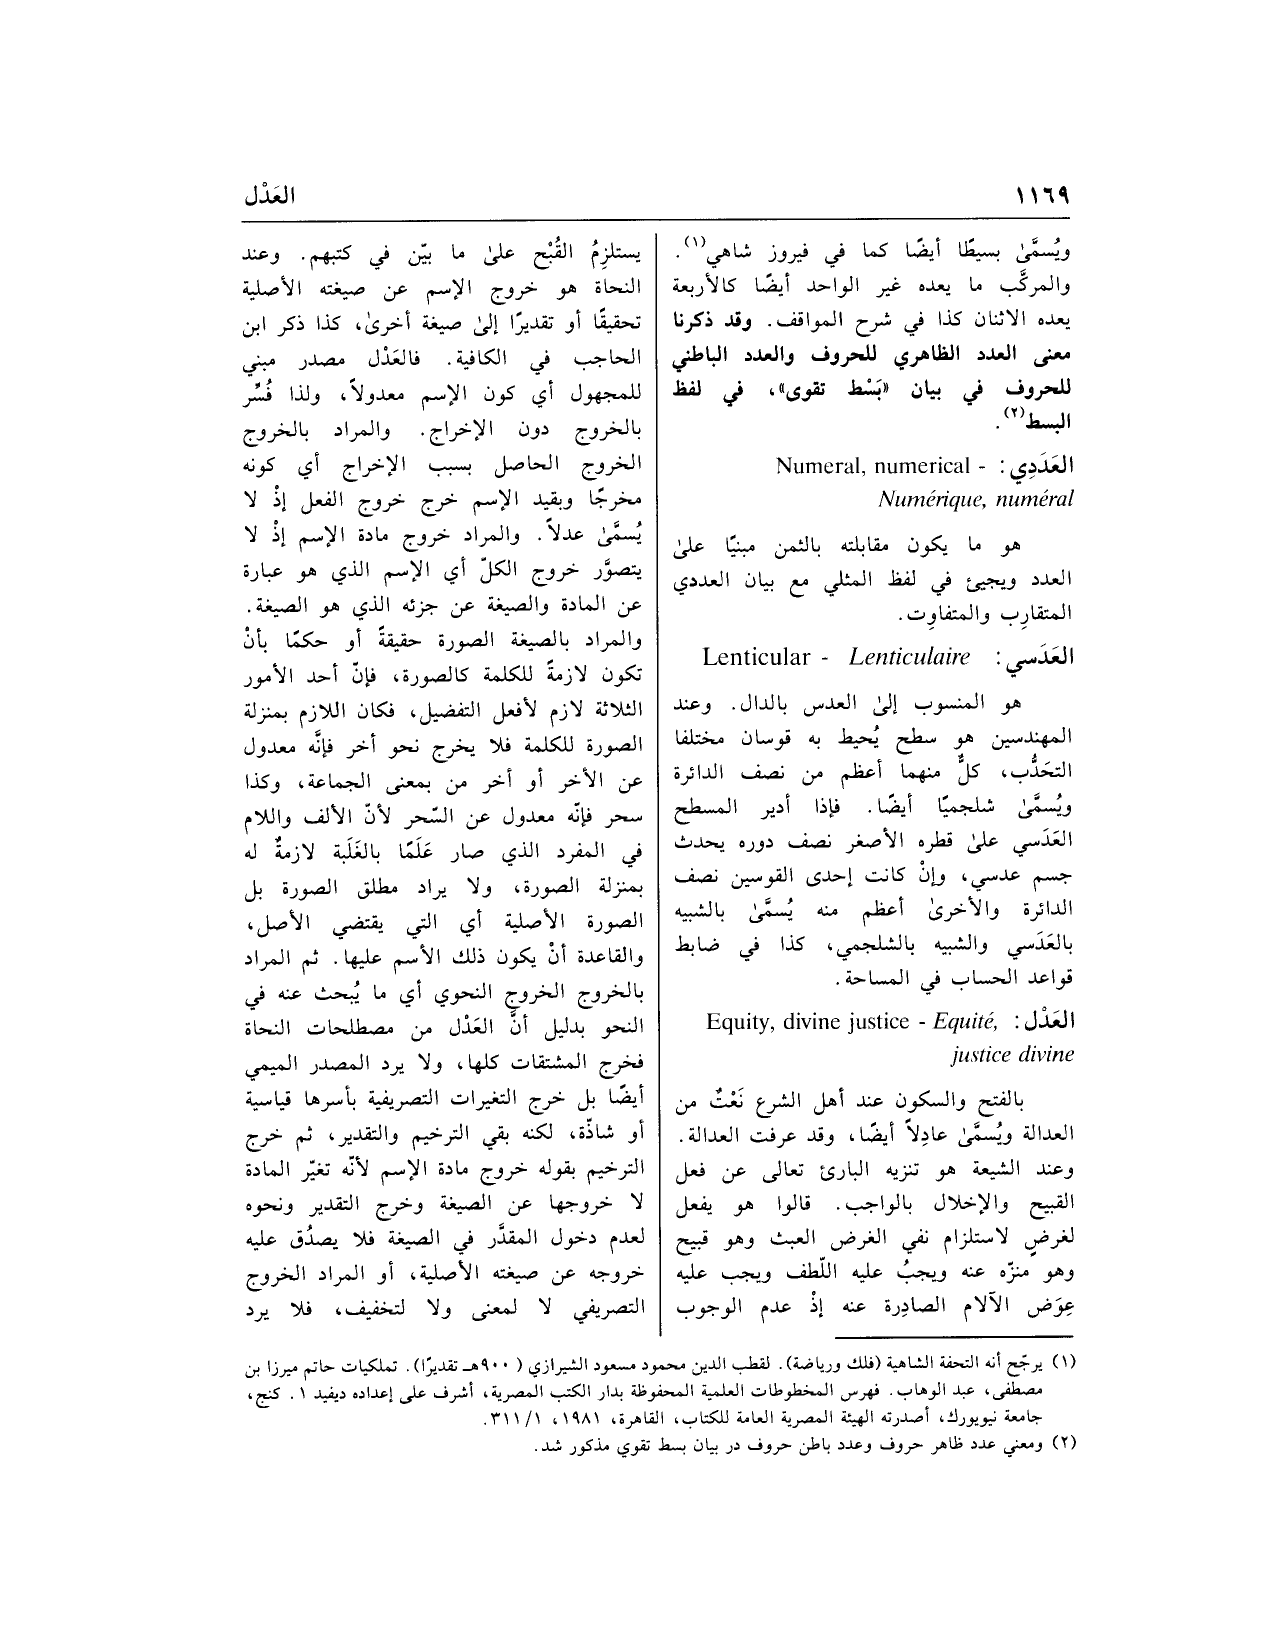 ١١٦٩
العَدْل
ويُسمَّىٰ بسيطًا أيضًا كما في فيروز شاهي(١).
والمركَّب ما يعده غير الواحد أيضًا كالأربعة
يعده الاثنان كذا في شرح المواقف. وقد ذكرنا
معنى العدد الظاهري للحروف والعدد الباطني
للحروف في بيان «بَسْط تقوى»، في لفظ
البسط(٢).
العَدَدِي: Numeral, numerical -
Numérique, numéral
هو ما يكون مقابلته بالثمن مبنيًا علىٰ
العدد ويجيئ في لفظ المثلي مع بيان العددي
المتقارِب والمتفاوِت.
العَدَسي: Lenticular - Lenticulaire
هو المنسوب إلىٰ العدس بالدال. وعند
المهندسين هو سطح يُحيط به قوسان مختلفا
التحَدُّب، كلٌّ منهما أعظم من نصف الدائرة
ويُسمَّىٰ شلجميًا أيضًا. فإذا أدير المسطح
العَدَسي علىٰ قطره الأصغر نصف دوره يحدث
جسم عدسي، وإنْ كانت إحدى القوسين نصف
الدائرة والأخرىٰ أعظم منه يُسمَّىٰ بالشبيه
بالعَدَسي والشبيه بالشلجمي، كذا في ضابط
قواعد الحساب في المساحة.
العَدْل: Equity, divine justice - Equité,
justice divine
بالفتح والسكون عند أهل الشرع نَعْتٌ من
العدالة ويُسمَّىٰ عادِلاً أيضًا، وقد عرفت العدالة.
وعند الشيعة هو تنزيه البارئ تعالى عن فعل
القبيح والإخلال بالواجب. قالوا هو يفعل
لغرضٍ لاستلزام نفي الغرض العبث وهو قبيح
وهو منزّه عنه ويجبُ عليه اللّطف ويجب عليه
عِوَض الآلام الصادِرة عنه إذْ عدم الوجوب
يستلزِمُ القُبْح علىٰ ما بيّن في كتبهم. وعند
النحاة هو خروج الإسم عن صيغته الأصلية
تحقيقًا أو تقديرًا إلىٰ صيغة أخرىٰ، كذا ذكر ابن
الحاجب في الكافية. فالعَدْل مصدر مبني
للمجهول أي كون الإسم معدولاً، ولذا فُسِّر
بالخروج دون الإخراج. والمراد بالخروج
الخروج الحاصل بسبب الإخراج أي كونه
مخرجًا وبقيد الإسم خرج خروج الفعل إذْ لا
يُسمَّىٰ عدلاً. والمراد خروج مادة الإسم إذْ لا
يتصوَّر خروج الكلّ أي الإسم الذي هو عبارة
عن المادة والصيغة عن جزئه الذي هو الصيغة.
والمراد بالصيغة الصورة حقيقةً أو حكمًا بأنْ
تكون لازمةً للكلمة كالصورة، فإنّ أحد الأمور
الثلاثة لازم لأفعل التفضيل، فكان اللازم بمنزلة
الصورة للكلمة فلا يخرج نحو أخر فإنَّه معدول
عن الأخر أو أخر من بمعنى الجماعة، وكذا
سحر فإنّه معدول عن السّحر لأنّ الألف واللام
في المفرد الذي صار عَلَمًا بالغَلَبة لازمةٌ له
بمنزلة الصورة، ولا يراد مطلق الصورة بل
الصورة الأصلية أي التي يقتضي الأصل،
والقاعدة أنْ يكون ذلك الأسم عليها. ثم المراد
بالخروج الخروج النحوي أي ما يُبحث عنه في
النحو بدليل أنَّ العَدْل من مصطلحات النحاة
فخرج المشتقات كلها، ولا يرد المصدر الميمي
أيضًا بل خرج التغيرات التصريفية بأسرها قياسية
أو شاذّة، لكنه بقي الترخيم والتقدير، ثم خرج
الترخيم بقوله خروج مادة الإسم لأنّه تغيّر المادة
لا خروجها عن الصيغة وخرج التقدير ونحوه
لعدم دخول المقدَّر في الصيغة فلا يصدُق عليه
خروجه عن صيغته الأصلية، أو المراد الخروج
التصريفي لا لمعنى ولا لتخفيف، فلا يرد
(١) يرجّح أنه التحفة الشاهية (فلك ورياضة). لقطب الدين محمود مسعود الشيرازي (٩٠٠هـ تقديرًا). تملكيات حاتم ميرزا بن
مصطفى، عبد الوهاب. فهرس المخطوطات العلمية المحفوظة بدار الكتب المصرية، أشرف على إعداده ديفيد ١. كنج،
جامعة نيويورك، أصدرته الهيئة المصرية العامة للكتاب، القاهرة، ١٩٨١، ٣١١/١.
(٢) ومعني عدد ظاهر حروف وعدد باطن حروف در بيان بسط تقوي مذكور شد.